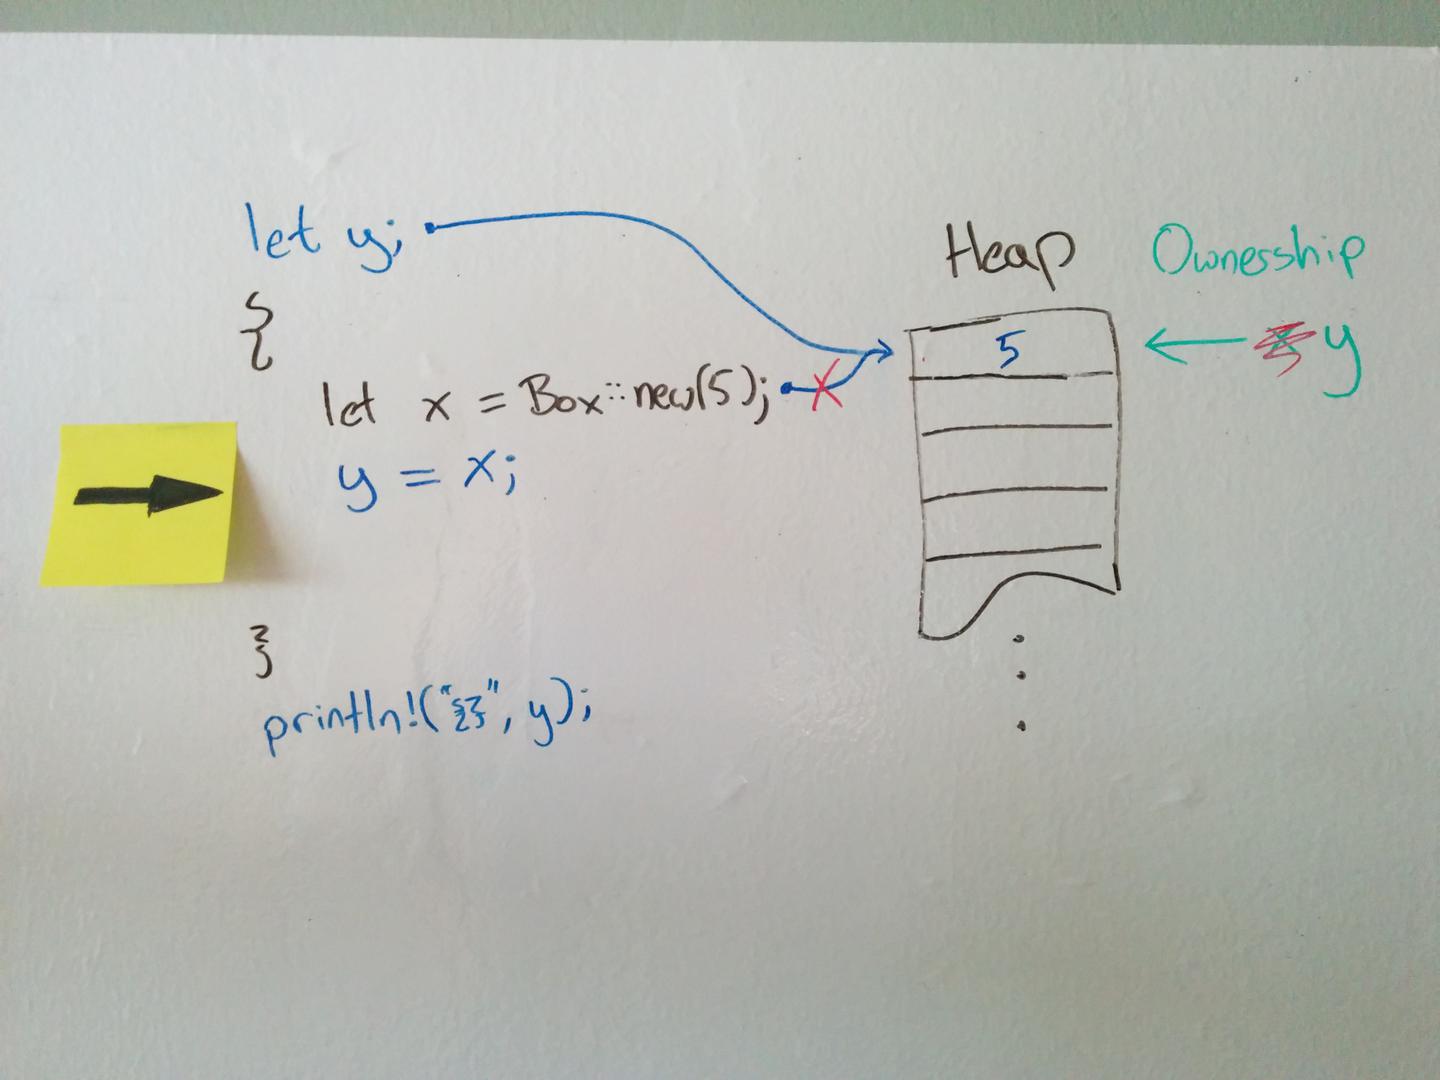 let y;
{
let x = Box::new(5);
y = x;
}
println!("{}", y);
Heap
5
Ownership
y